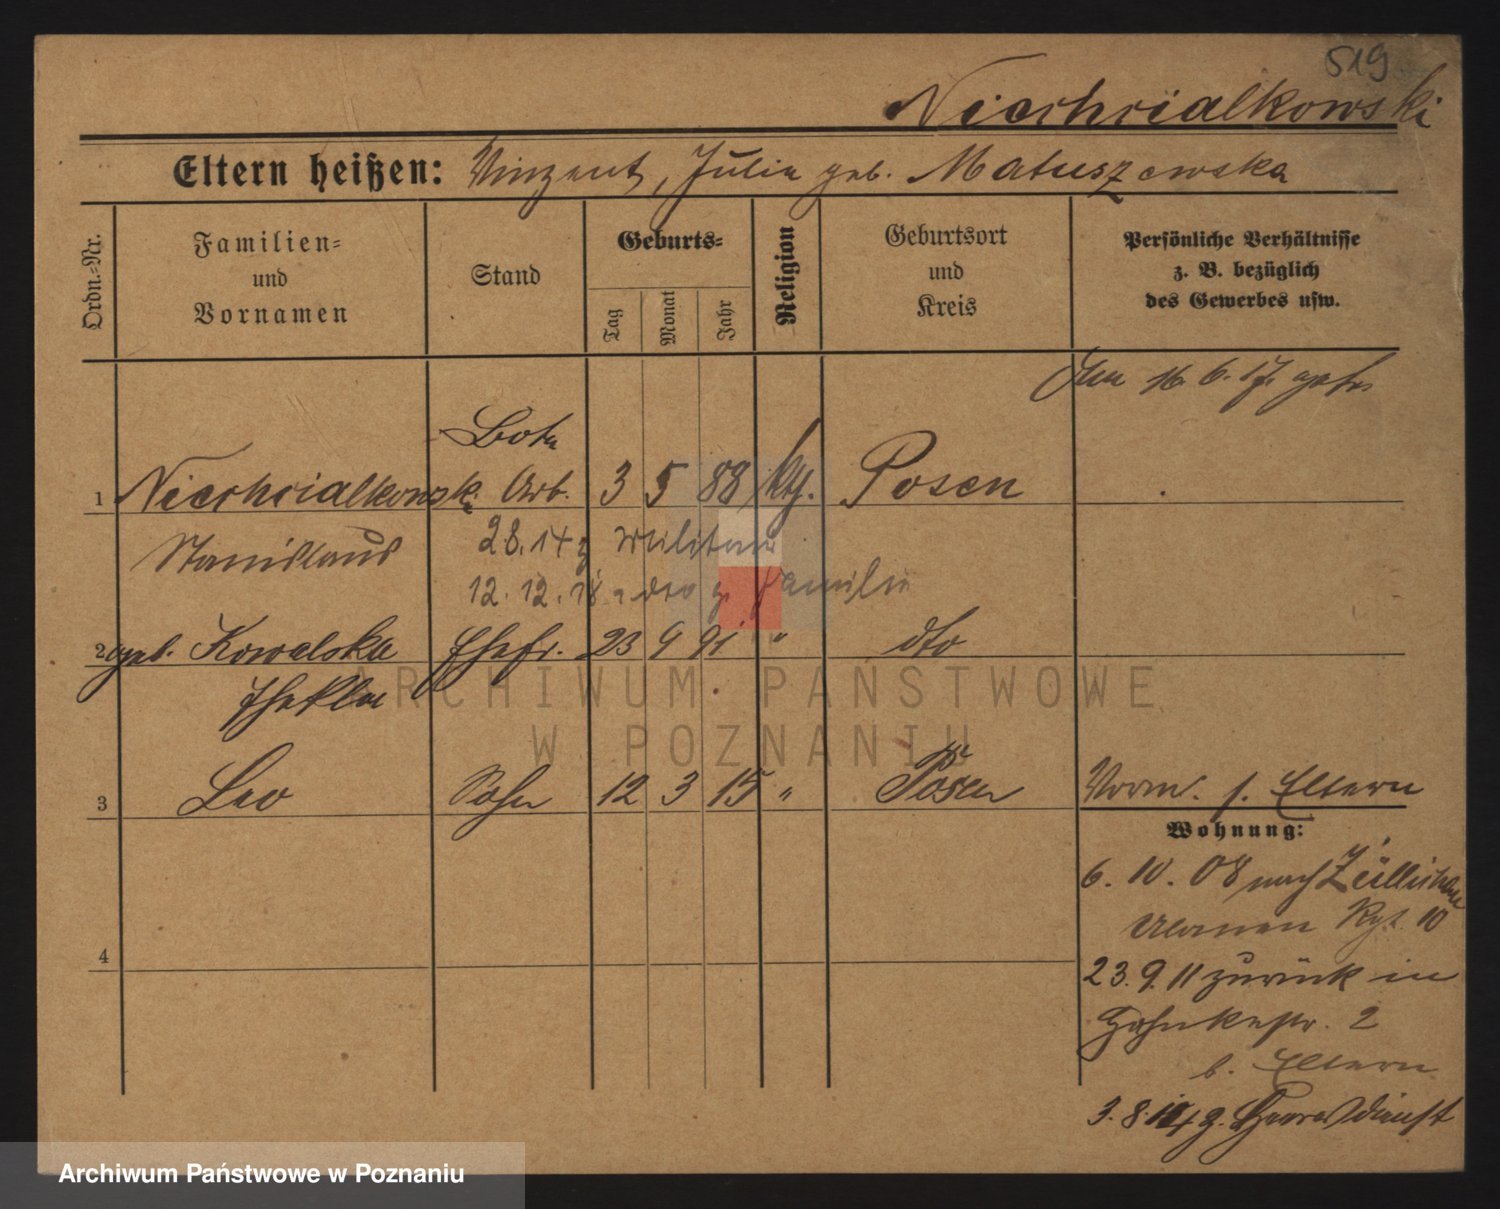 519
Niechcialkowski
Eltern heißen: Vinzent, Julia geb. Matuszewska
Ordn.=Nr.
Familien=
und
Vornamen
Stand
Geburts=
Tag
Monat
Jahr
Religion
Geburtsort
und
Kreis
Persönliche Verhältnisse
z. B. bezüglich
des Gewerbes usw.
16. 6. 17.
Bote
1 Niechcialkowski Arb. 3 5 88 kth. Posen
Stanislaus
2.8.14 z Militär
12.12.18 z. Familie
2 geb. Kowalska Ehefr. 23 9 91 " dto
Thekla
3 Leo Sohn 12 3 15 " Posen
Vorm. s. Eltern
Wohnung:
6. 10. 08 nach Züllichau
Ulanen Rgt. 10
4
23. 9. 11 zurück in
2
b. Eltern
3. 8. 14 z. Heeresdienst
ARCHIWUM PAŃSTWOWE
W POZNANIU
Archiwum Państwowe w Poznaniu